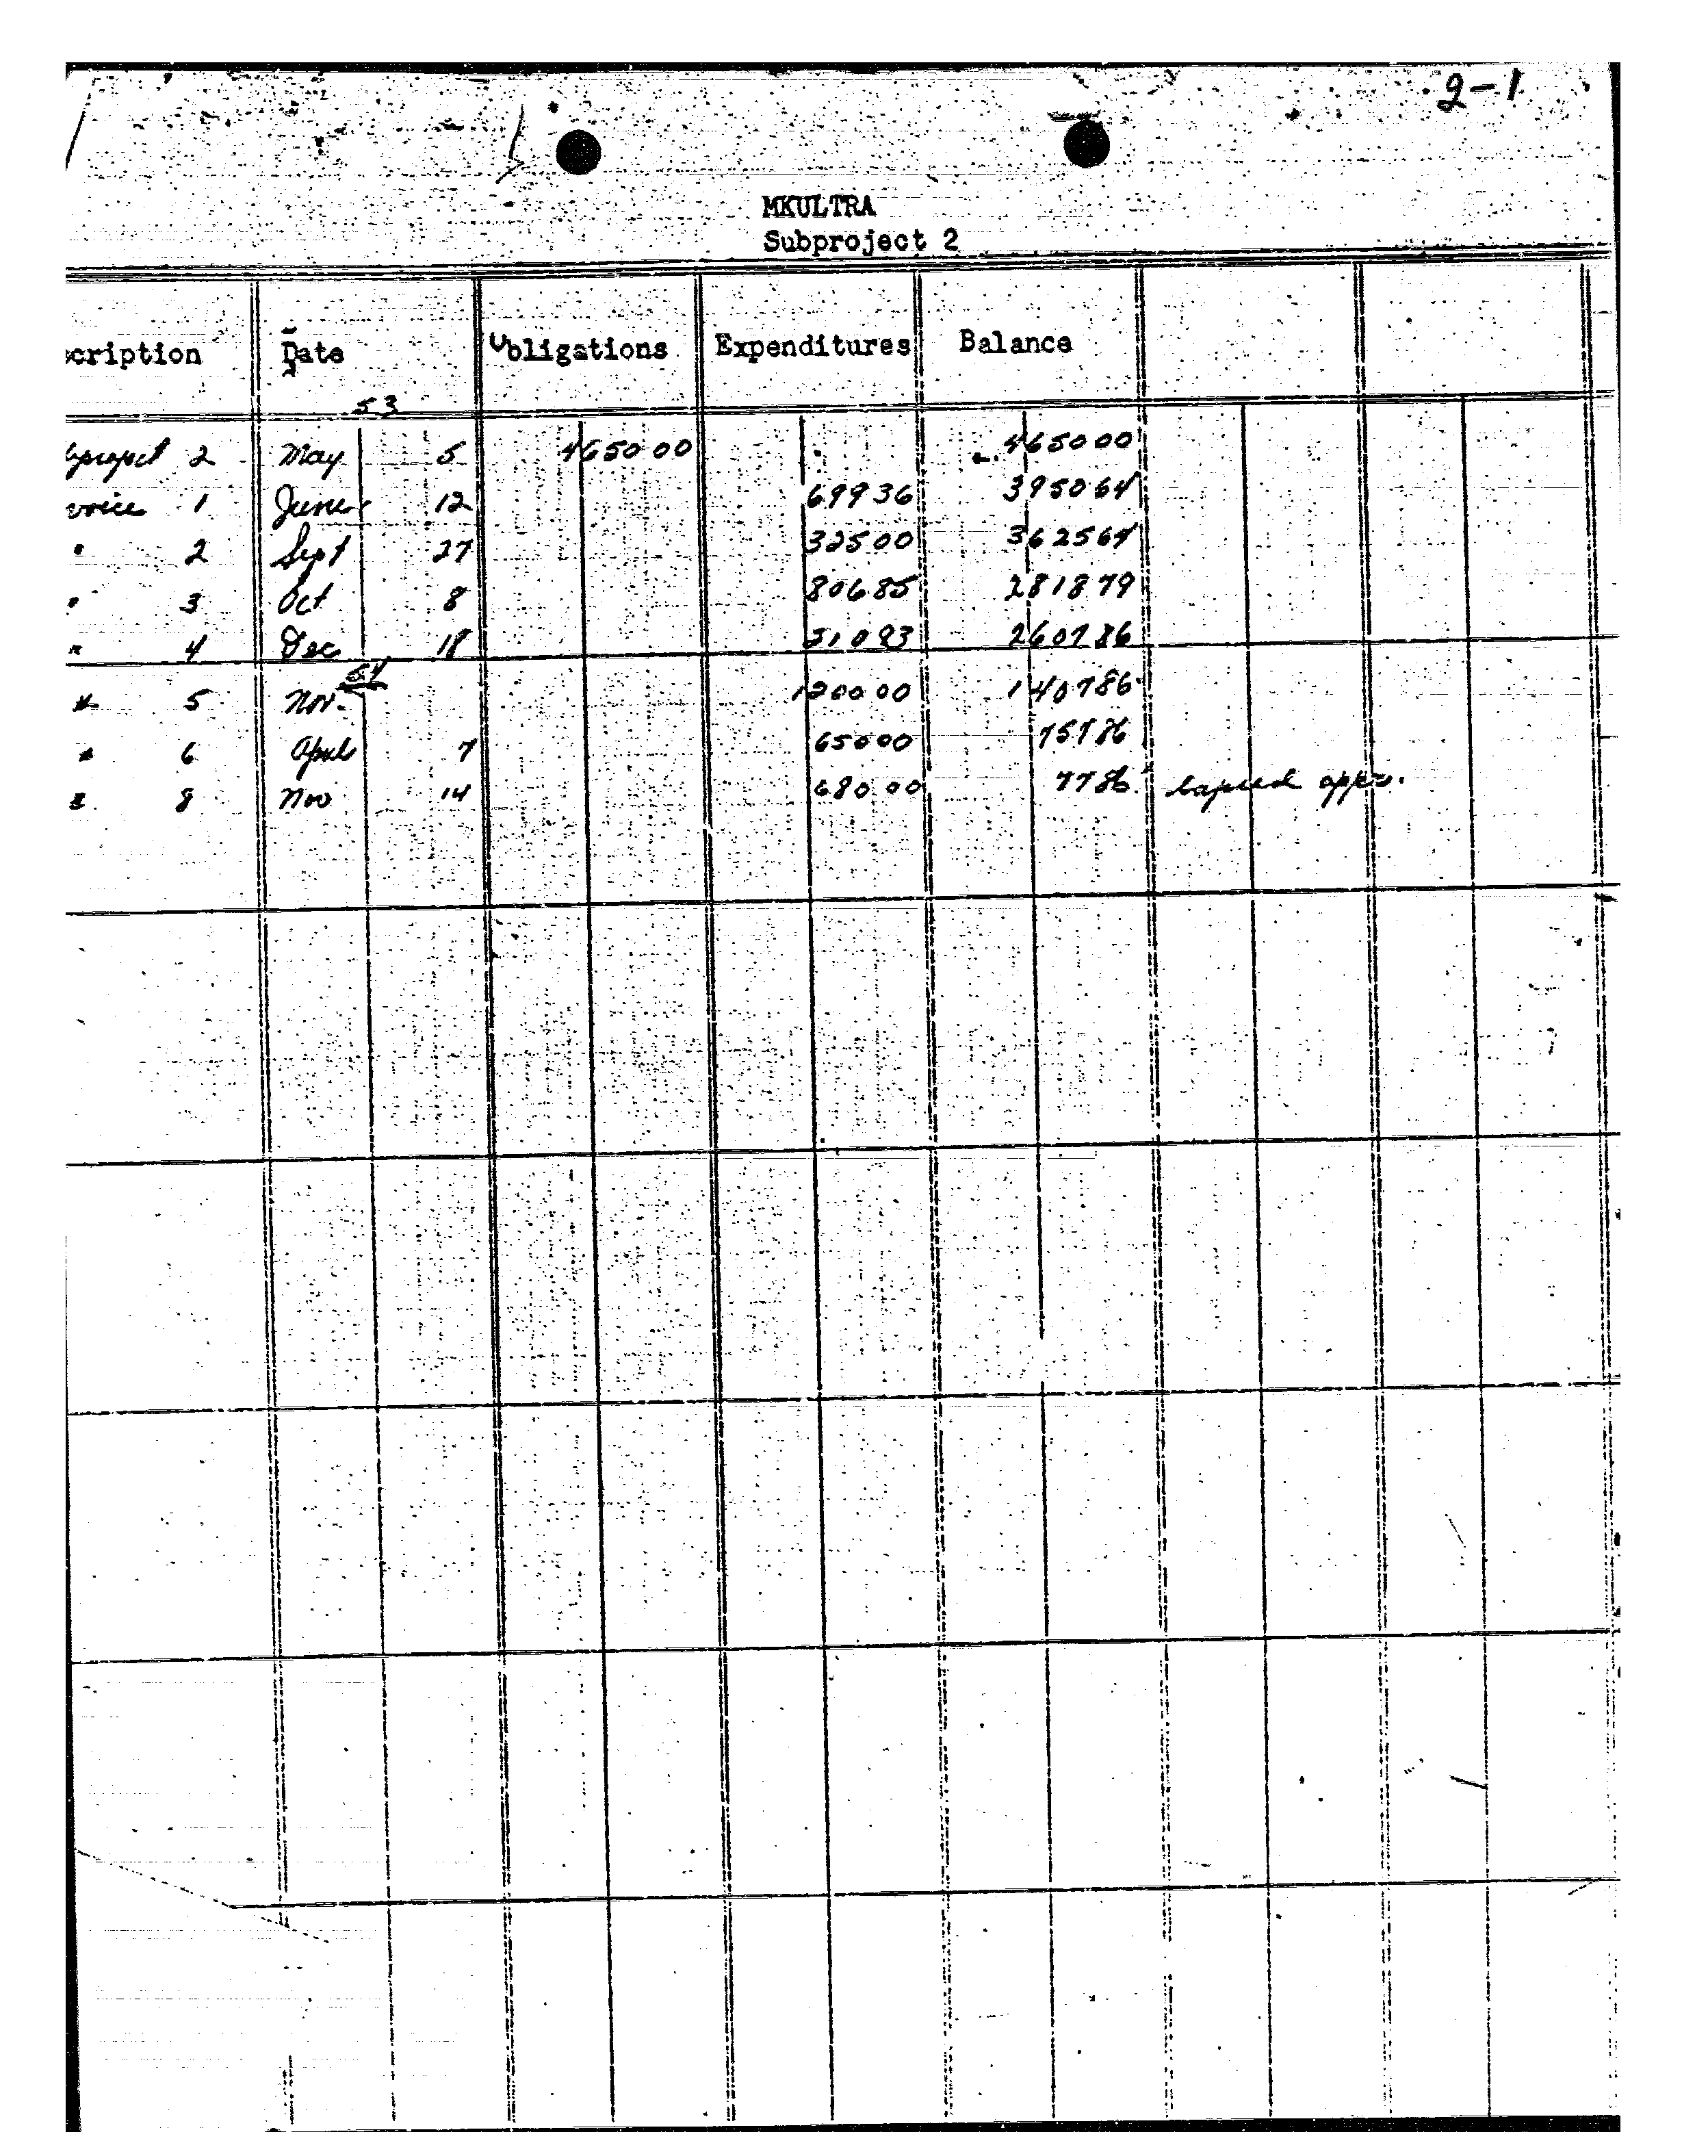 2-1
MKULTRA
Subproject 2
cription Date Obligations Expenditures Balance
53
bproject 2 May 5 4650 00 4650 00
voice 1 June 12 699 36 3950 64
" 2 Sept 27 325 00 3625 64
" 3 Oct 8 806 85 2818 79
" 4 Dec 18 210 93 2607 86
54
" 5 Nov. 1200 00 1407 86
" 6 April 7 650 00 757 86
" 8 Nov 14 680 00 77 86 lapsed appro.